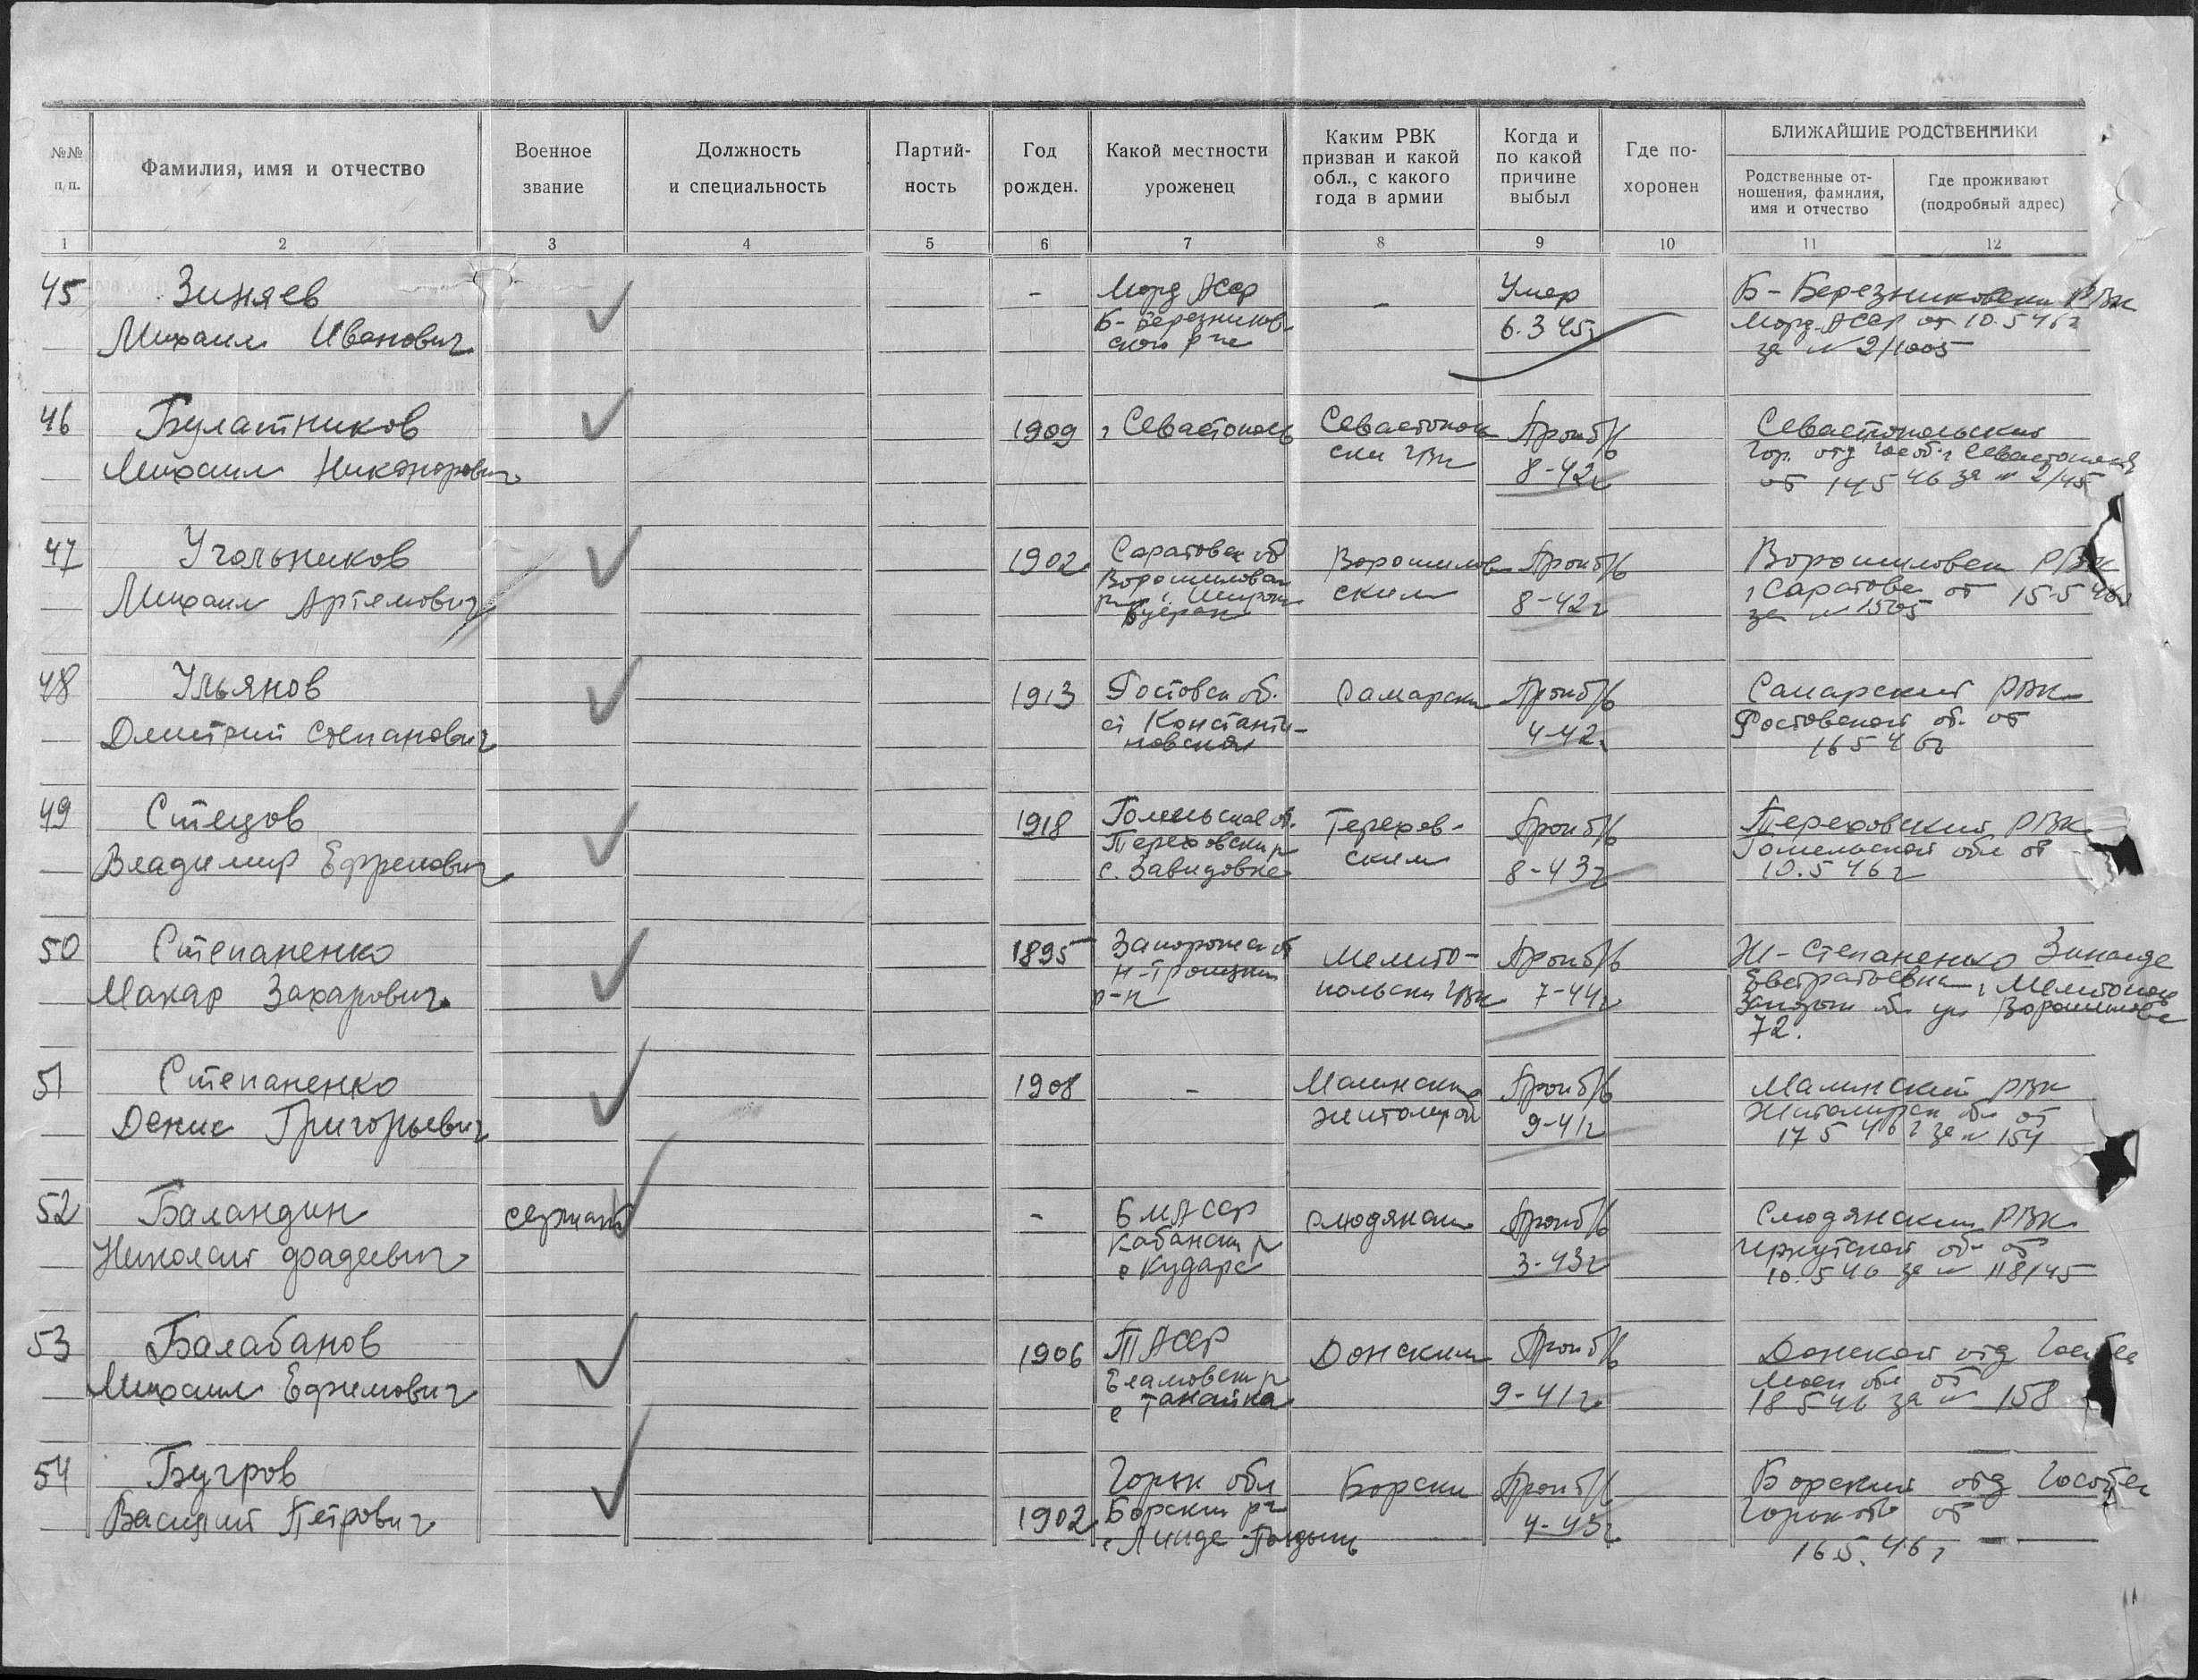 №№ п/п.
Фамилия, имя и отчество
Военное звание
Должность и специальность
Партий-
ность
Год рожден.
Какой местности уроженец
Каким РВК призван и какой обл., с какого года в армии
Когда и по какой причине выбыл
Где по-
хоронен
БЛИЖАЙШИЕ РОДСТВЕННИКИ
Родственные от-
ношения, фамилия, имя и отчество
Где проживают (подробный адрес)
1 2 3 4 5 6 7 8 9 10 11 12
45 Зиняев - Морд АССР - Умер Б-Березниковски РВК
Михаил Иванович Б-Березников- 6.3 45г Морд АССР от 10.5 46г
ской р не за № 2/1005
46 Булатников 1909 г Севастополь Севастополь Проп б/в Севастопольский
Михаил Никанорович ски ГВК 8-42г Гор. отд Гособ г Севастополя
от 14 5 46 за № 2/45
47 Угольников 1902 Саратовск об Ворошилов Проп б/в Ворошиловск РВК
Михаил Артемович Ворошиловск ским 8-42г г Саратова от 15-5 46г
Буерак за № 1505
48 Ульянов 1913 Ростовск об. Самарски Проп б/в Самарский РВК
Дмитрий Степанович ст Константи- 4-42г Ростовской об. от
новская 16 5 46г
49 Стецов 1918 Гомельской об. Терехов- Проп б/в Тереховский РВК
Владимир Ефремович Тереховски р ским 8-43г Гомельской обл от
с. Завидовке 10.5 46г
50 Степаненко 1895 Запорожск об Мелито- Проп б/в Ж-Степаненко Зинаида
Макар Захарович Н-Троицкий польски ГВК 7-44г Евстратьевна г Мелитополь
р-н Запорож об ул Ворошилова
72.
51 Степаненко 1908 - Малинским Проп б/в Малинский РВК
Денис Григорьевич Житомирск 9-41г Житомирск об от
17 5 46 г за № 154
52 Баландин сержант - БМАССР Слюдянским Проп б/в Слюдянским РВК
Николай Фадеевич Кабански р 3-43г Иркутской об от
с Кудара 10.5 46 за № 118/45
53 Балабанов 1906 ТАССР Донским Проп б/в Донской отд Гособес
Михаил Ефимович Елабовски р 9-41г Моск обл от
с Танайка 18 5 46 за № 158
54 Бугров Горьк обл Борски Проп б/в Борский отд Гособес
Василий Петрович 1902 Борским р-н 4-45г Горьк об от
с Линда 16 5. 46 г